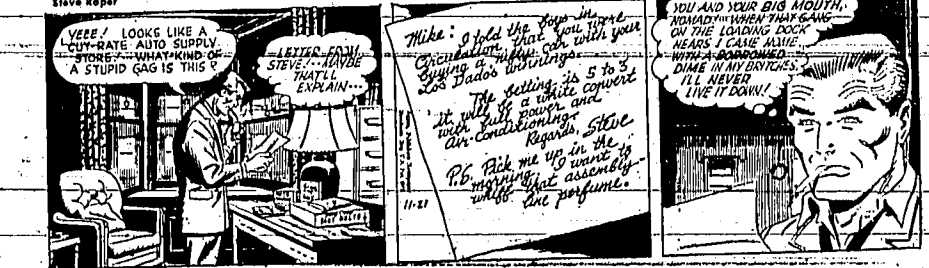 Steve Roper
YEEE! LOOKS LIKE A
CUT-RATE AUTO SUPPLY
STORE! WHAT KIND OF
A STUPID GAG IS THIS?
LETTER FROM
STEVE! MAYBE
THAT'LL
EXPLAIN...
Mike: I told the boys in
Circulation that you were
buying a new car with your
Los Dados winnings.
The betting is 5 to 3
it will be a white convert
with full power and
air-conditioning.
Regards, Steve
P.S. Pick me up in the
morning. I want to
whiff that assembly-
line perfume.
11-21
YOU AND YOUR BIG MOUTH,
NOMAD! WHEN THAT GANG
ON THE LOADING DOCK
HEARS I CAME HOME
WITH A BORROWED
DIME IN MY BRITCHES,
I'LL NEVER
LIVE IT DOWN!